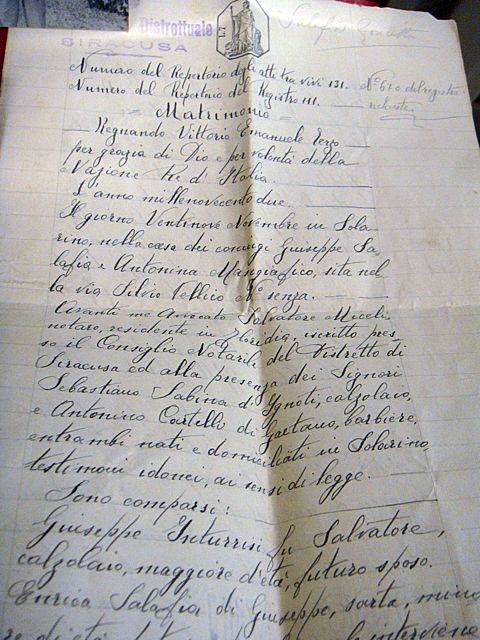 Distrettuale
SIRACUSA
L.1
Salafia
Numero del Repertorio degli atti tra vivi 131.
Numero del Repertorio del Registro 111.
N° 670 del registro
Matrimonio
Regnando Vittorio Emanuele Terzo
per grazia di Dio e per volontà della
Nazione Re d'Italia.
L'anno millenovecento due.
Il giorno Ventinove Novembre in Sola-
rino, nella casa dei coniugi Giuseppe Sa-
lafia e Antonina Mangiafico, sita nel
la via Silvio Pellico N° senza.
Avanti me Avvocato Salvatore Miceli
notaro, residente in Floridia, iscritto pres-
so il Consiglio Notarile del Distretto di
Siracusa ed alla presenza dei Signori
Sebastiano Sabina di Ignoti, calzolaio,
e Antonino Castello di Gaetano, barbiere,
entrambi nati e domiciliati in Solarino,
testimoni idonei, ai sensi di legge.
Sono comparsi:
Giuseppe Inturrisi fu Salvatore,
calzolaio, maggiore d'età, futuro sposo.
Enrica Salafia di Giuseppe, sarta, mino
re di età